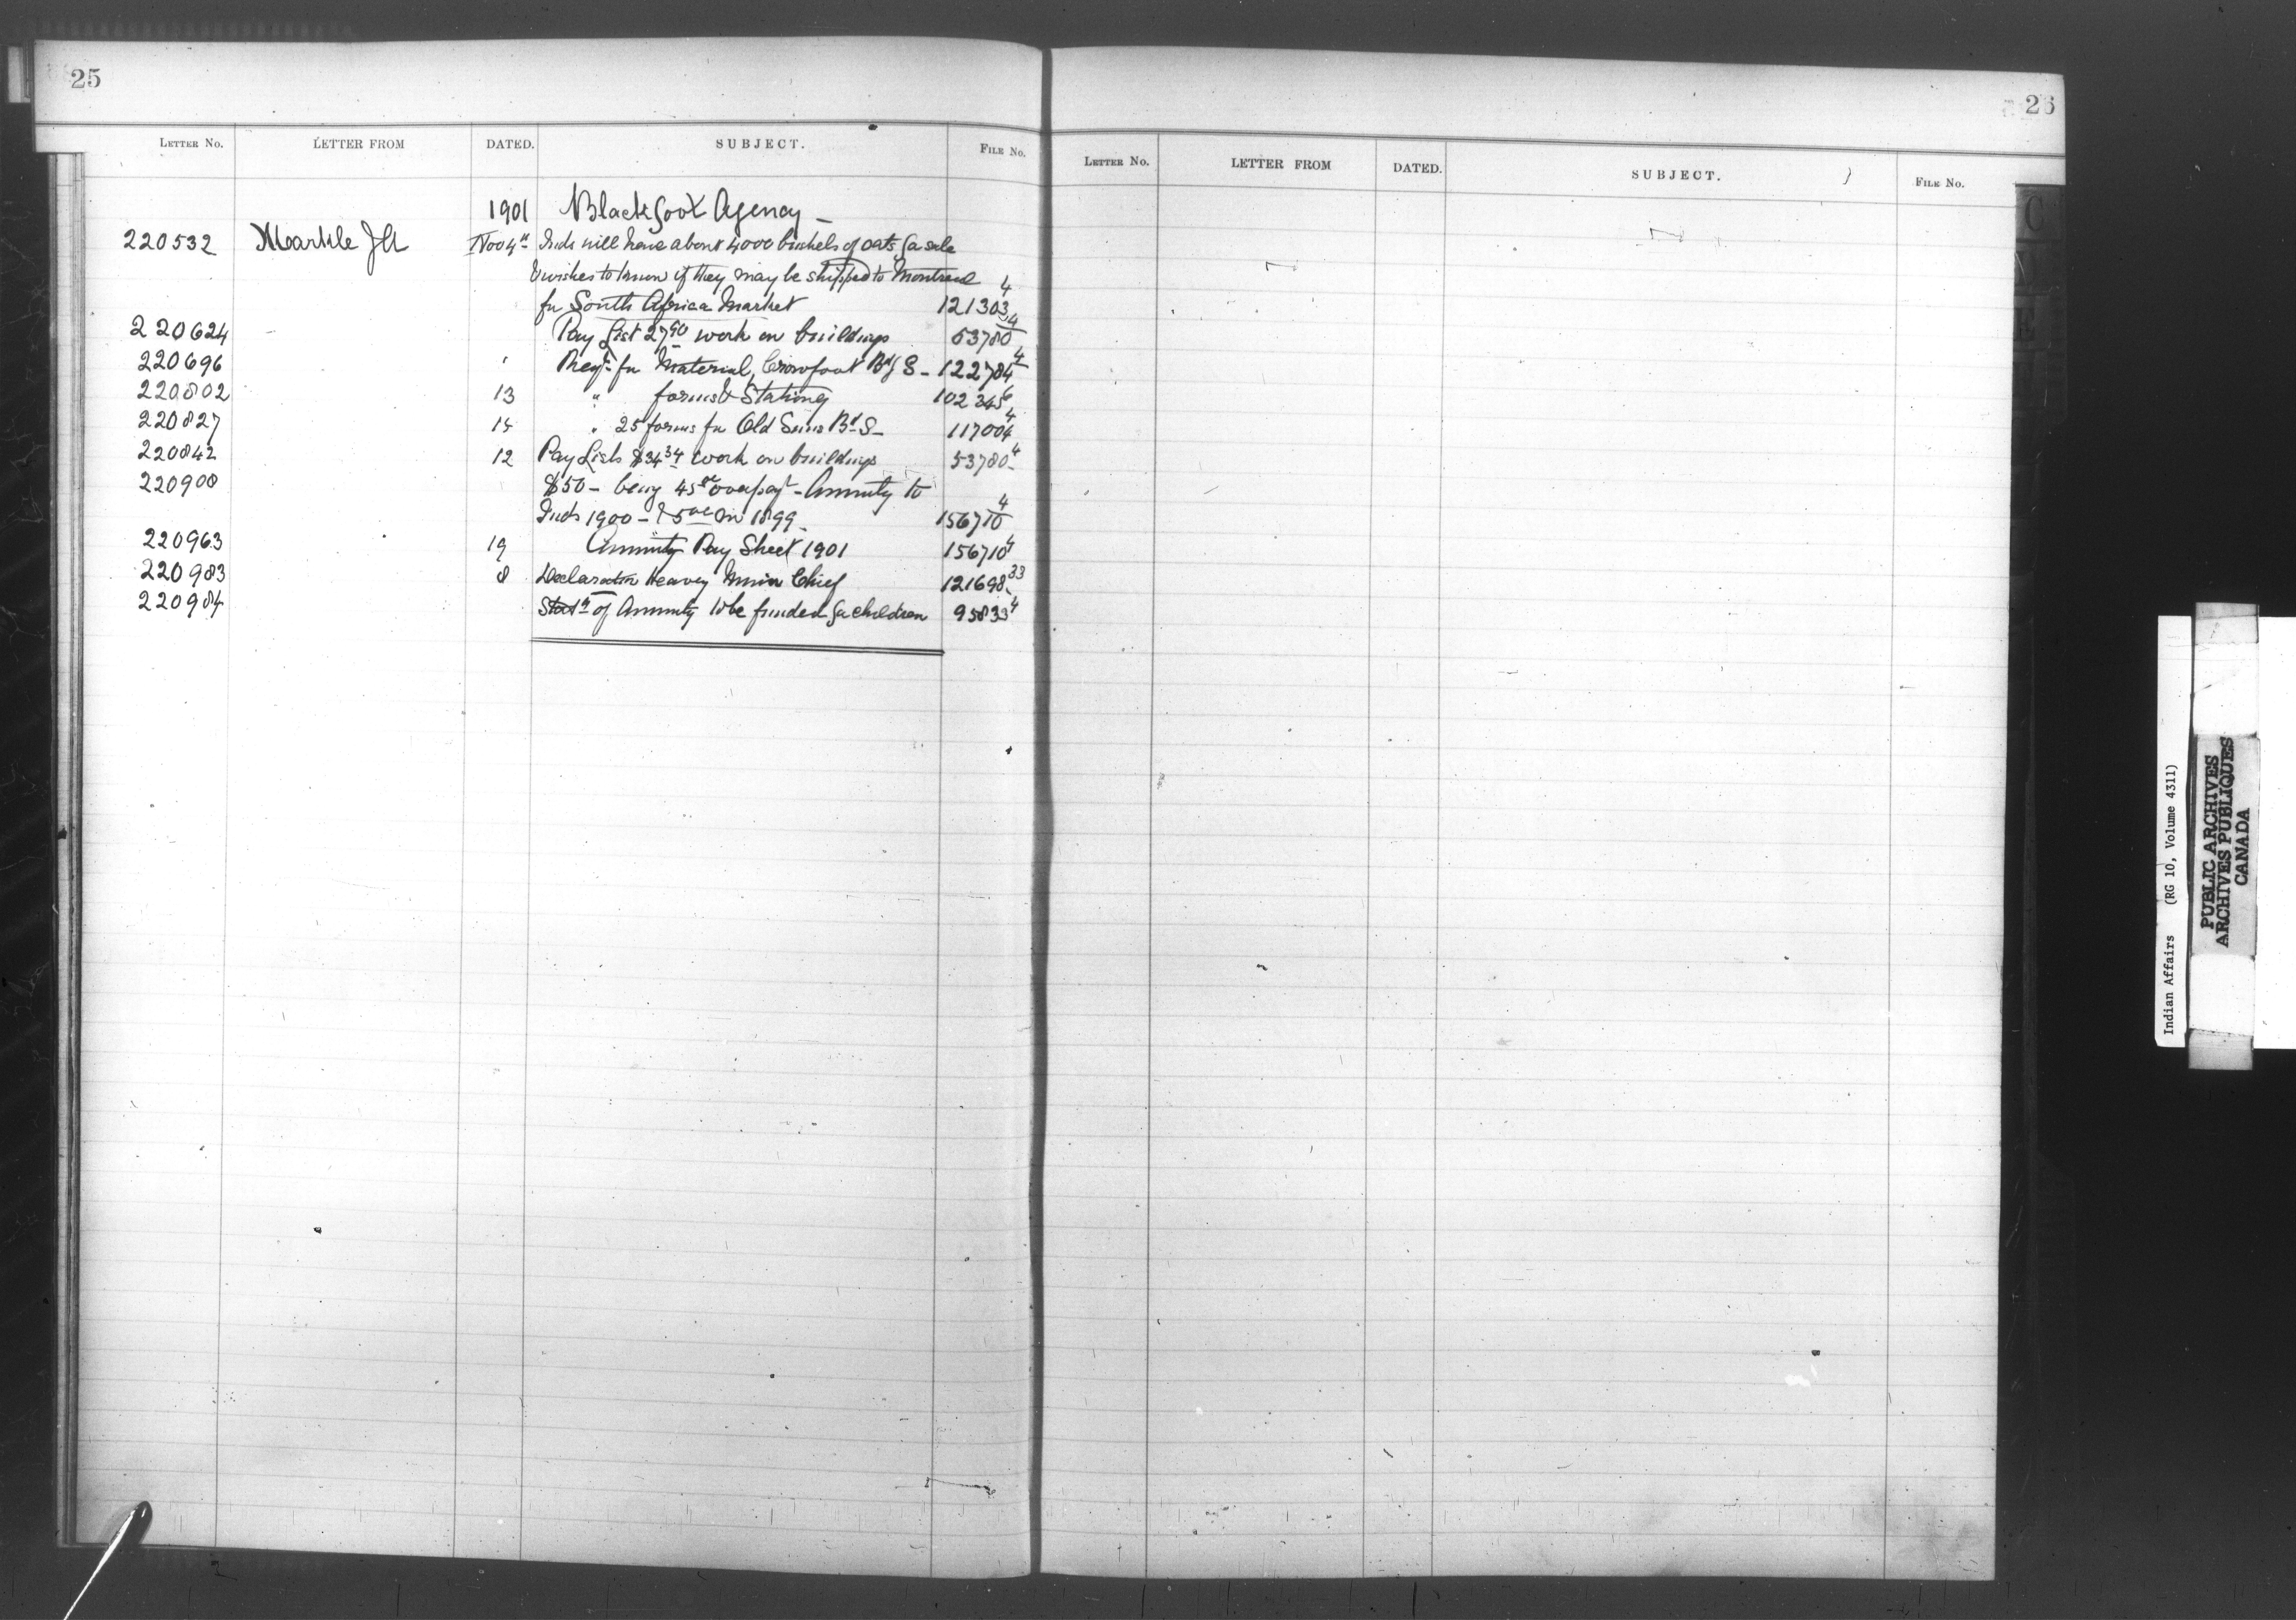 25
LETTER No. LETTER FROM DATED. SUBJECT. FILE No.
1901 Blackfoot Agency —
220532 Markle J A Nov 4th Inds will have about 4000 bushels of oats for sale
& wishes to know if they may be shipped to Montreal
for South Africa Market 121303 4
220624 Pay List 27 90 work on buildings 53780 4
220696 " Reqn for Material, Crowfoot Bdg S — 122784 4
220802 13 " forms & Stationy 102345 6
220827 14 " 25 forms for Old Suns Bd S — 117004 4
220842 12 Pay Lists $34 34 work on buildings 53780 4
220908 $50 — being 45 00 overpayt — Annuity to
Inds 1900 — & 5 00 in 1899 156710 4
220963 19 Annuity Pay Sheet 1901 156710 4
220983 8 Declaration Heavy Chief 121698 33
220984 Statt of Annuity to be funded for children 95833 4
26
LETTER No. LETTER FROM DATED. SUBJECT. FILE No.
Indian Affairs (RG 10, Volume 4311)
PUBLIC ARCHIVES
ARCHIVES PUBLIQUES
CANADA